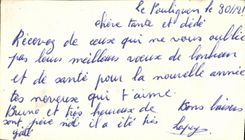 Le Pouliguen le 30/12/
chère tante et dédé
Recevez de ceux qui ne vous oublie
pas leurs meilleurs vœux de bonheur
et de santé pour la nouvelle année
tes neveux qui t'aime.
Bruno et très heureux de Bons baisers
son père noël il a été très